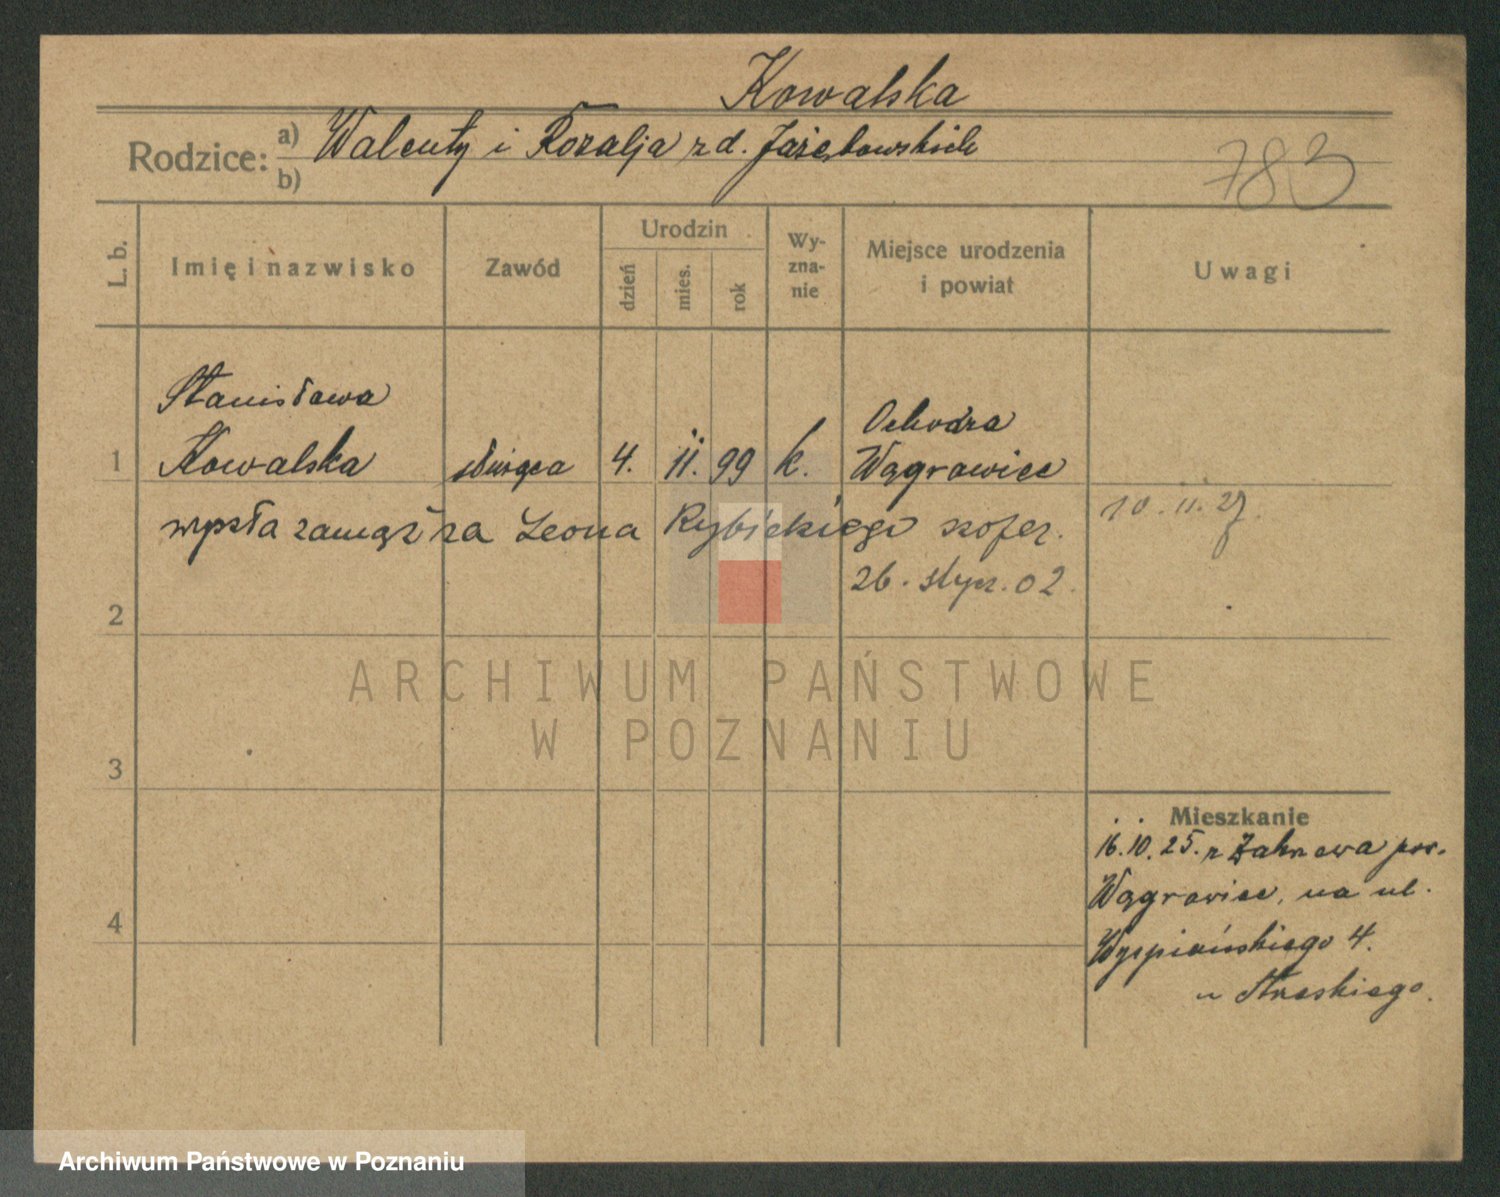 Kowalska
Rodzice: a) Walenty i Rozalja z d.
b)
783
L. b.
Imię i nazwisko
Zawód
Urodzin
dzień
mies.
rok
Wy-
zna-
nie
Miejsce urodzenia
i powiat
Uwagi
Stanisława
Ochodza
1 Kowalska służąca 4. 11. 99 k. Wągrowiec
wyszła zamąż za Leona Rybickiego szofer. 10. 11. 27.
26. stycz. 02.
2
ARCHIWUM PAŃSTWOWE
W POZNANIU
3
Mieszkanie
16.10.25. z
Wągrowiec, na ul.
4
Wyspiańskiego 4.
u
Archiwum Państwowe w Poznaniu